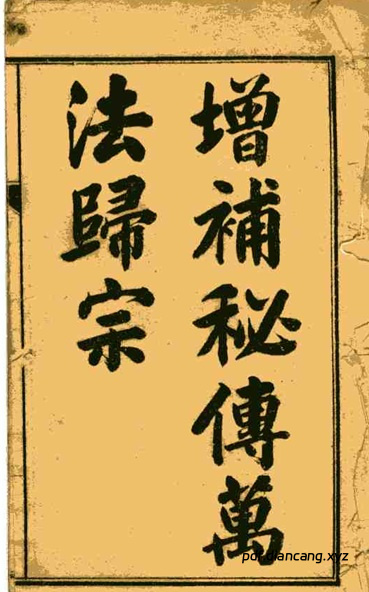 增補秘傳萬
法歸宗
pdf.diancang.xyz